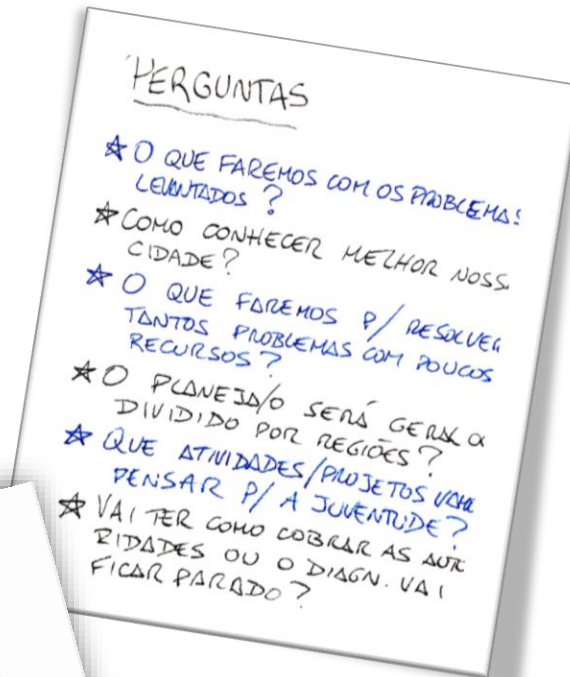 PERGUNTAS
☆ O QUE FAREMOS COM OS PROBLEMAS
LEVANTADOS?
☆ COMO CONHECER MELHOR NOSS
CIDADE?
☆ O QUE FAREMOS P/ RESOLVER
TANTOS PROBLEMAS COM POUCOS
RECURSOS?
☆ O PLANEJA/O SERÁ GERAL O
DIVIDIDO POR REGIÕES?
☆ QUE ATIVIDADES/PROJETOS VAM
PENSAR P/ A JUVENTUDE?
☆ VAI TER COMO COBRAR AS AUTO
RIDADES OU O DIAGN. VAI
FICAR PARADO?